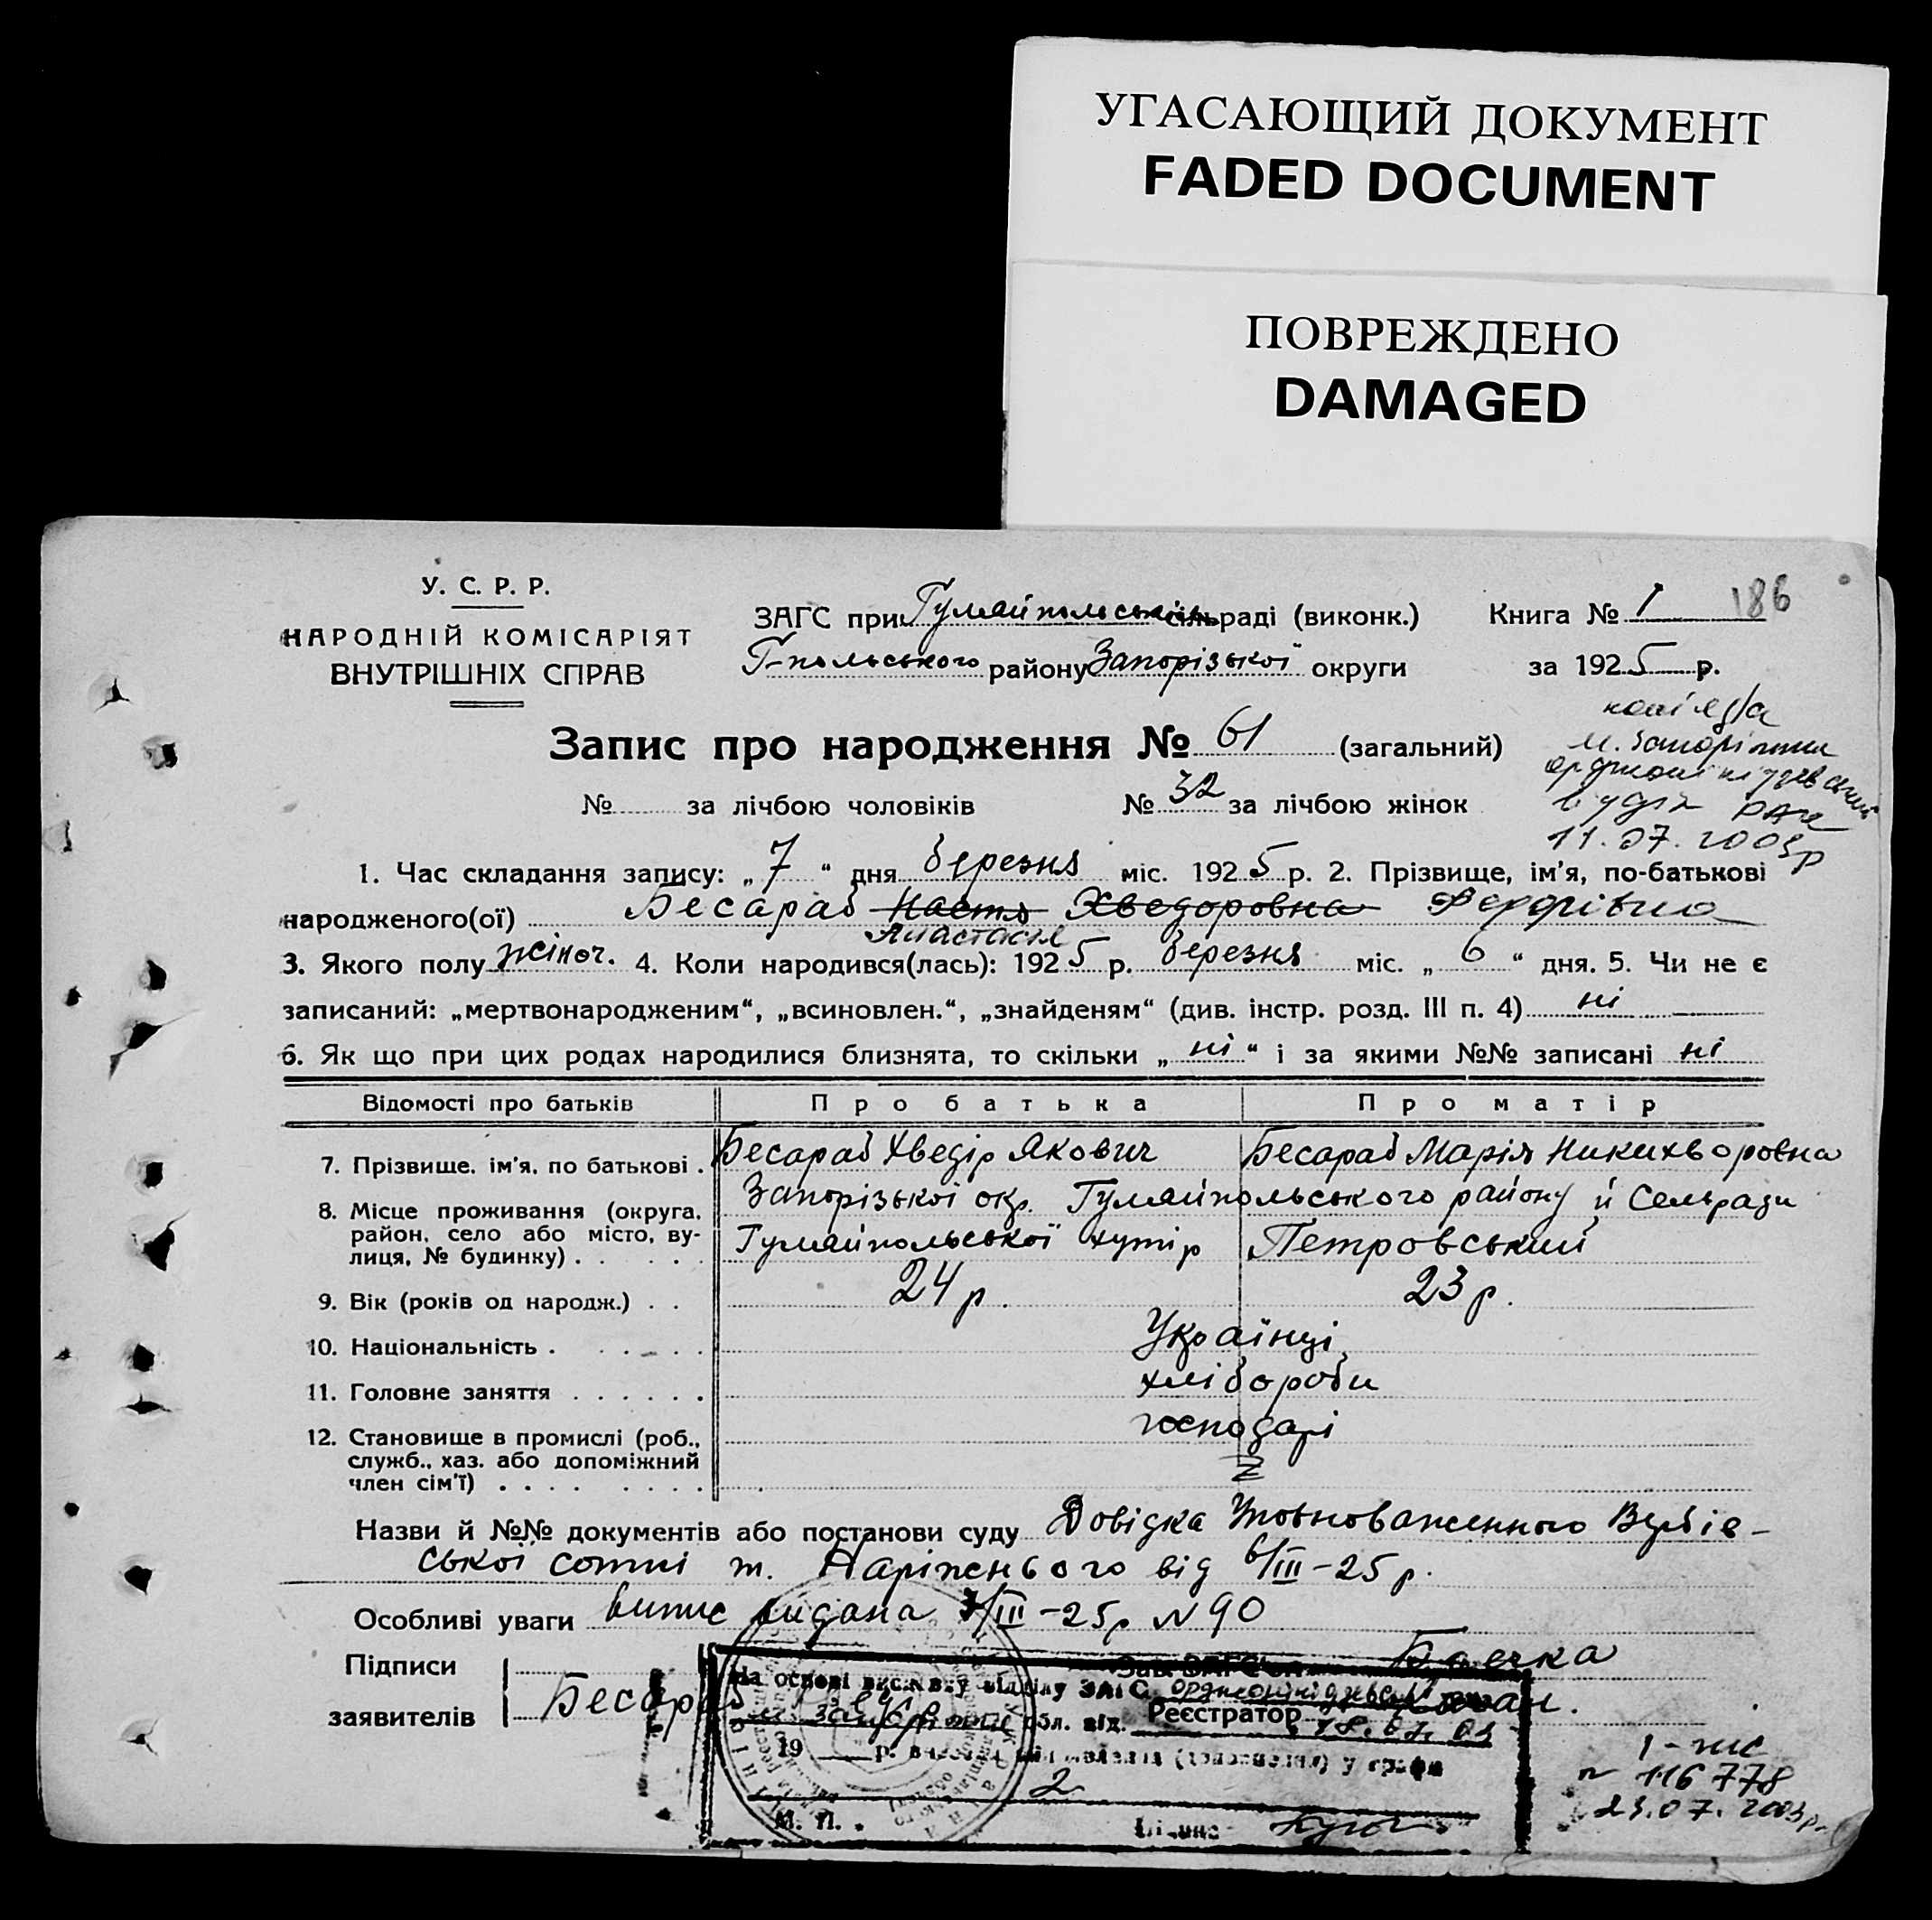 УГАСАЮЩИЙ ДОКУМЕНТ
FADED DOCUMENT
ПОВРЕЖДЕНО
DAMAGED
У. С. Р. Р.
НАРОДНІЙ КОМІСАРІЯТ
ВНУТРІШНІХ СПРАВ
ЗАГС при Гуляйпольській раді (виконк.)
Г-польського району Запорізької округи
Книга № 1 186
за 1925 р.
Запис про народження № 61 (загальний)
м. Запоріжжя
11.07.2003р
№ за лічбою чоловіків № 32 за лічбою жінок
1. Час складання запису: „ 7 “ дня березня міс. 1925 р. 2. Прізвище, ім'я, по-батькові
народженого(ої) Бесараб Настя Хведоровна Федорівна
Анастасія
3. Якого полу жіноч. 4. Коли народився(лась): 1925 р. березня міс. „ 6 “ дня. 5. Чи не є
записаний: „мертвонародженим“, „всиновлен.“, „знайденям“ (див. інстр. розд. III п. 4) ні
6. Як що при цих родах народилися близнята, то скільки „ ні “ і за якими №№ записані ні
Відомості про батьків Про батька Про матір
7. Прізвище, ім'я, по батькові . Бесараб Хведір Якович Бесараб Марія Никихворовна
8. Місце проживання (округа, район, село або місто, вулиця, № будинку) . . . . . Запорізької окр. Гуляйпольського району й Сельради
Гуляйпольської хутір Петровський
9. Вік (років од народж.) . . 24 р. 23 р.
10. Національність . . . . . . Українці
11. Головне заняття . . . . . . хлібороби
12. Становище в промислі (роб., служб., хаз. або допоміжний член сім'ї) . . . . . . . . господарі
Назви й №№ документів або постанови суду Довідка Уповноваженного Вербів-
ської сотні т. Наріжнього від 6/III-25 р.
Особливі уваги випис видана 7/III-25р N 90
Підписи
заявителів Бесараб
Зав. ЗАГС'ом
Реєстратор
На основі висновку відділу ЗАГС
м. Запоріжжя обл. від 18.07.03
19 р. внесені (доповнення) у графи
2
М. П.
N 116778
23.07.2003р.